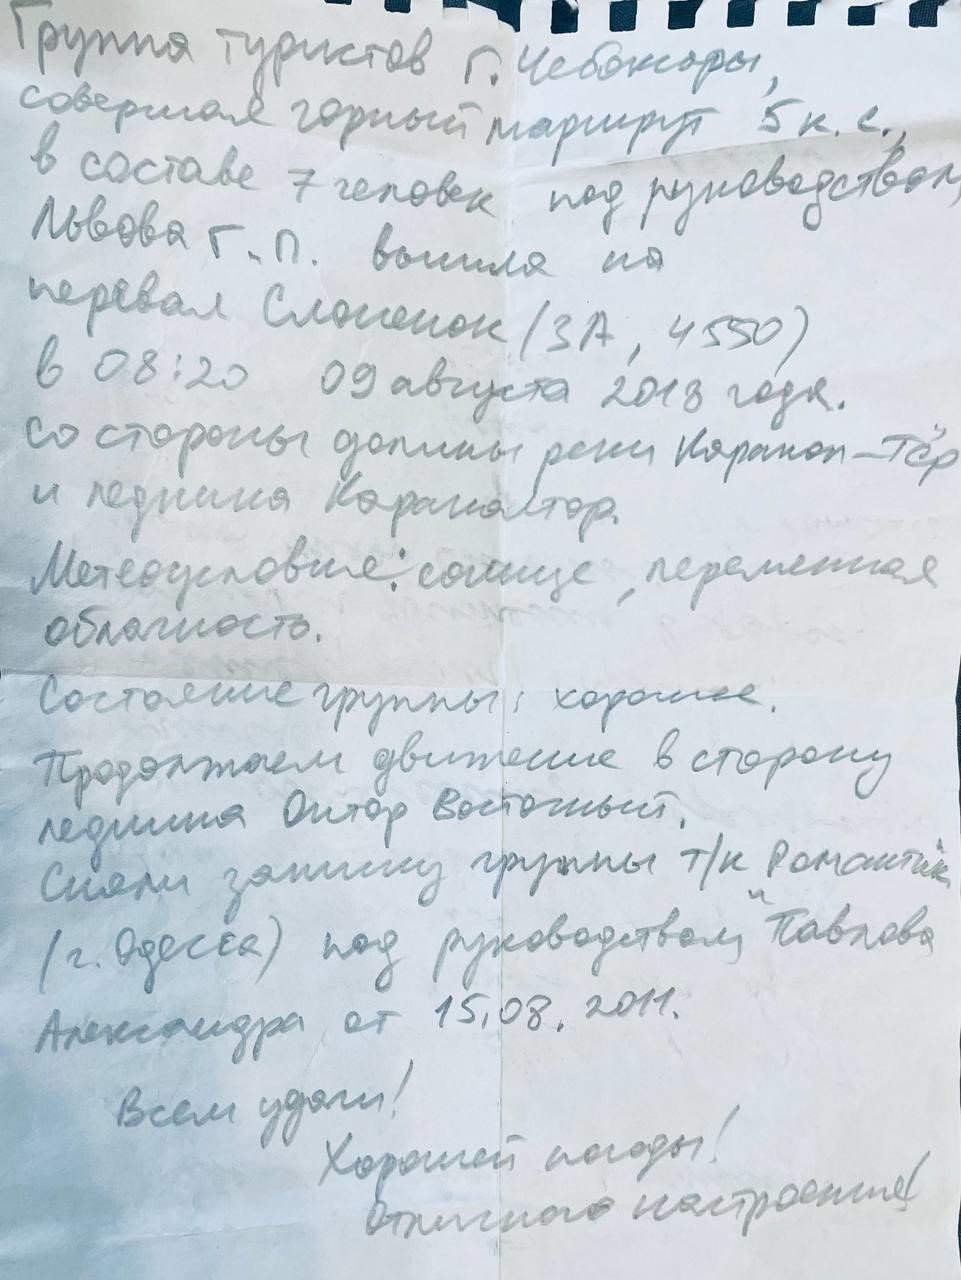 Группа туристов г. Чебоксары,
совершая горный маршрут 5 к.с.,
в составе 7 человек под руководством
Львова Г.П. вышла на
перевал Слоненок (3А, 4550)
в 08:20 09 августа 2018 года.
со стороны долины реки Каракол-Тёр
и ледника Караколтор.
Метеоусловие: солнце, переменная
облачность.
Состояние группы: хорошее.
Продолжаем движение в сторону
ледника Онтор Восточный.
Сняли записку группы т/к Романтик
(г. Одесса) под руководством Павлова
Александра от 15.08.2011.
Всем удачи!
Хорошей погоды!
Отличного настроения!